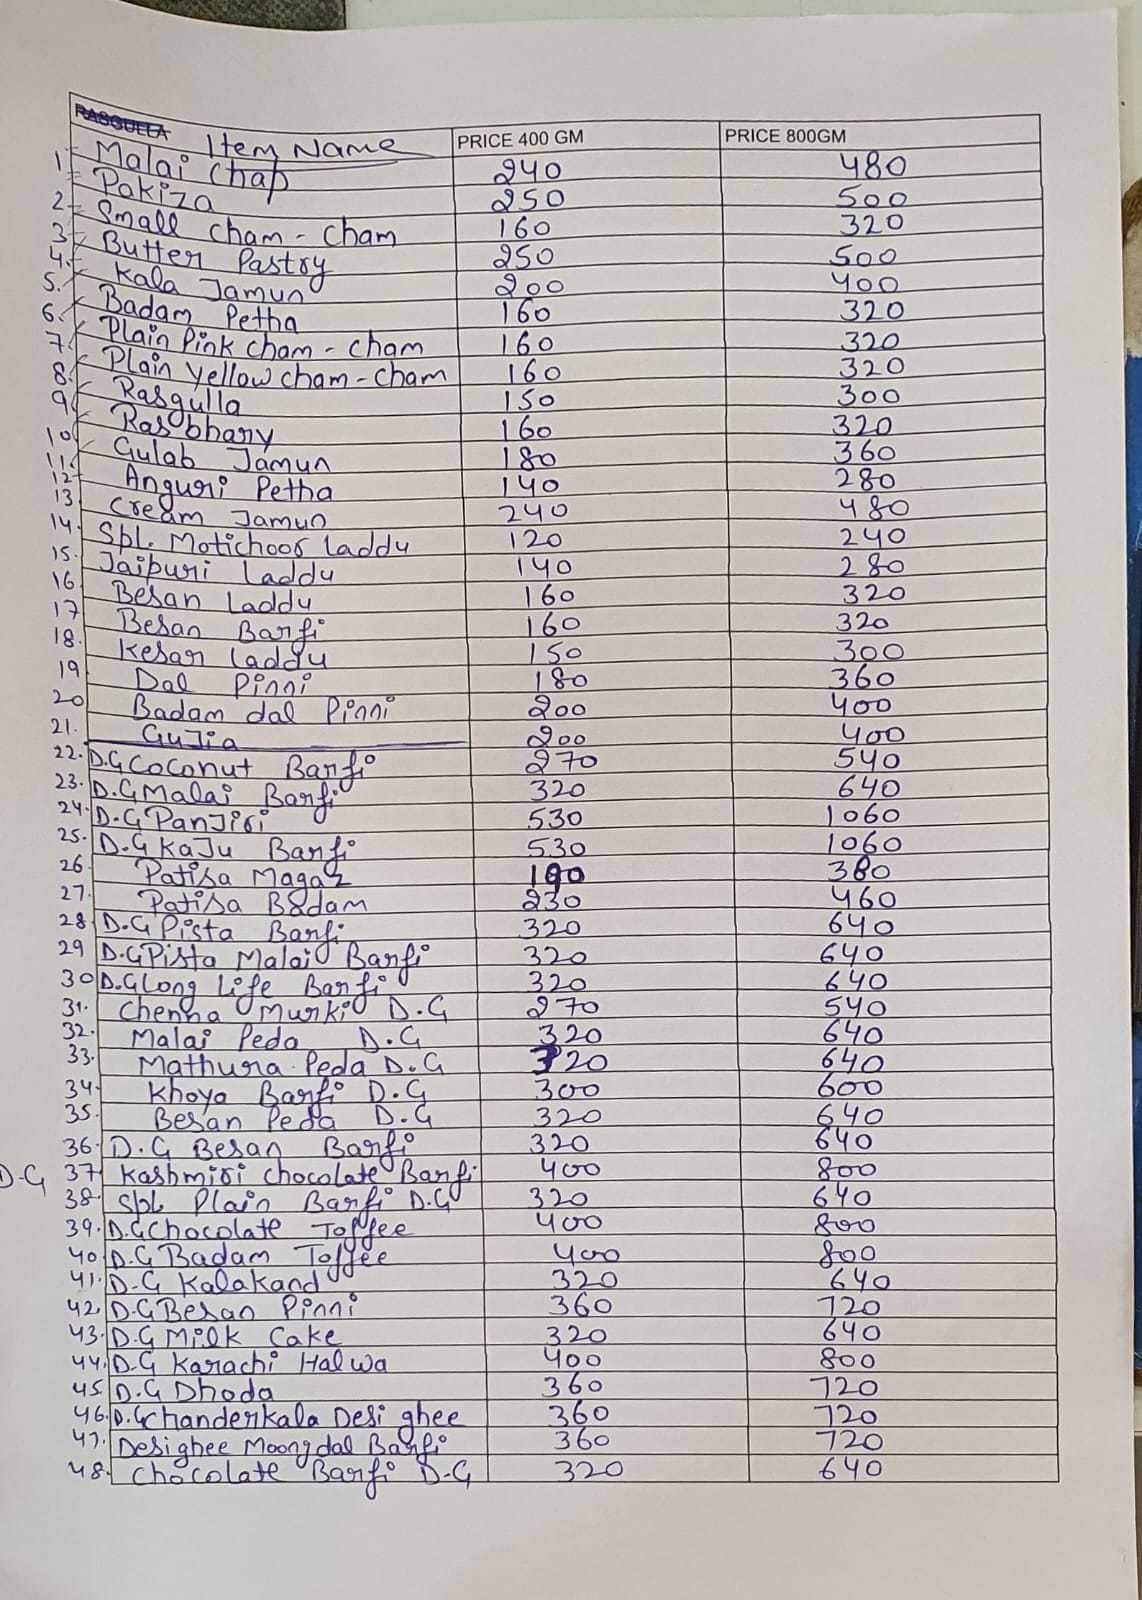 RASGULLA Item Name PRICE 400 GM PRICE 800GM
1 Malai Chap 240 480
2 Pakiza 250 500
3 Small Cham - Cham 160 320
4. Butter Pastry 250 500
5. Kala Jamun 200 400
6. Badam Petha 160 320
7. Plain Pink Cham - Cham 160 320
8. Plain Yellow Cham - Cham 160 320
9 Rasgulla 150 300
10 Rasbhary 160 320
11. Gulab Jamun 180 360
12 Anguri Petha 140 280
13 Cream Jamun 240 480
14. Spl. Motichoor Laddu 120 240
15. Jaipuri Laddu 140 280
16 Besan Laddu 160 320
17 Besan Barfi 160 320
18. Kesar Laddu 150 300
19 Dal Pinni 180 360
20 Badam dal Pinni 200 400
21. GuJia 200 400
22. D.G Coconut Barfi 270 540
23. D.G Malai Barfi 320 640
24. D.G PanJiri 530 1060
25. D.G KaJu Barfi 530 1060
26 Patisa Magaz 190 380
27. Patisa Badam 230 460
28 D.G Pista Barfi 320 640
29 D.G Pista Malai Barfi 320 640
30 D.G Long Life Barfi 320 640
31. Chenna Murki D.G 270 540
32. Malai Peda D.G 320 640
33. Mathura Peda D.G 320 640
34 Khoya Barfi D.G 300 600
35. Besan Peda D.G 320 640
36. D.G Besan Barfi 320 640
D-G 37 Kashmiri Chocolate Barfi 400 800
38. Spl Plain Barfi D.G 320 640
39. D.G Chocolate Toffee 400 800
40 D.G Badam Toffee 400 800
41. D-G Kalakand 320 640
42 D.G Besan Pinni 360 720
43. D.G Milk Cake 320 640
44. D.G Karachi Halwa 400 800
45 D.G Dhoda 360 720
46. D.G Chanderkala Desi ghee 360 720
47. Desi ghee Moong dal Barfi 360 720
48. Chocolate Barfi D-G 320 640